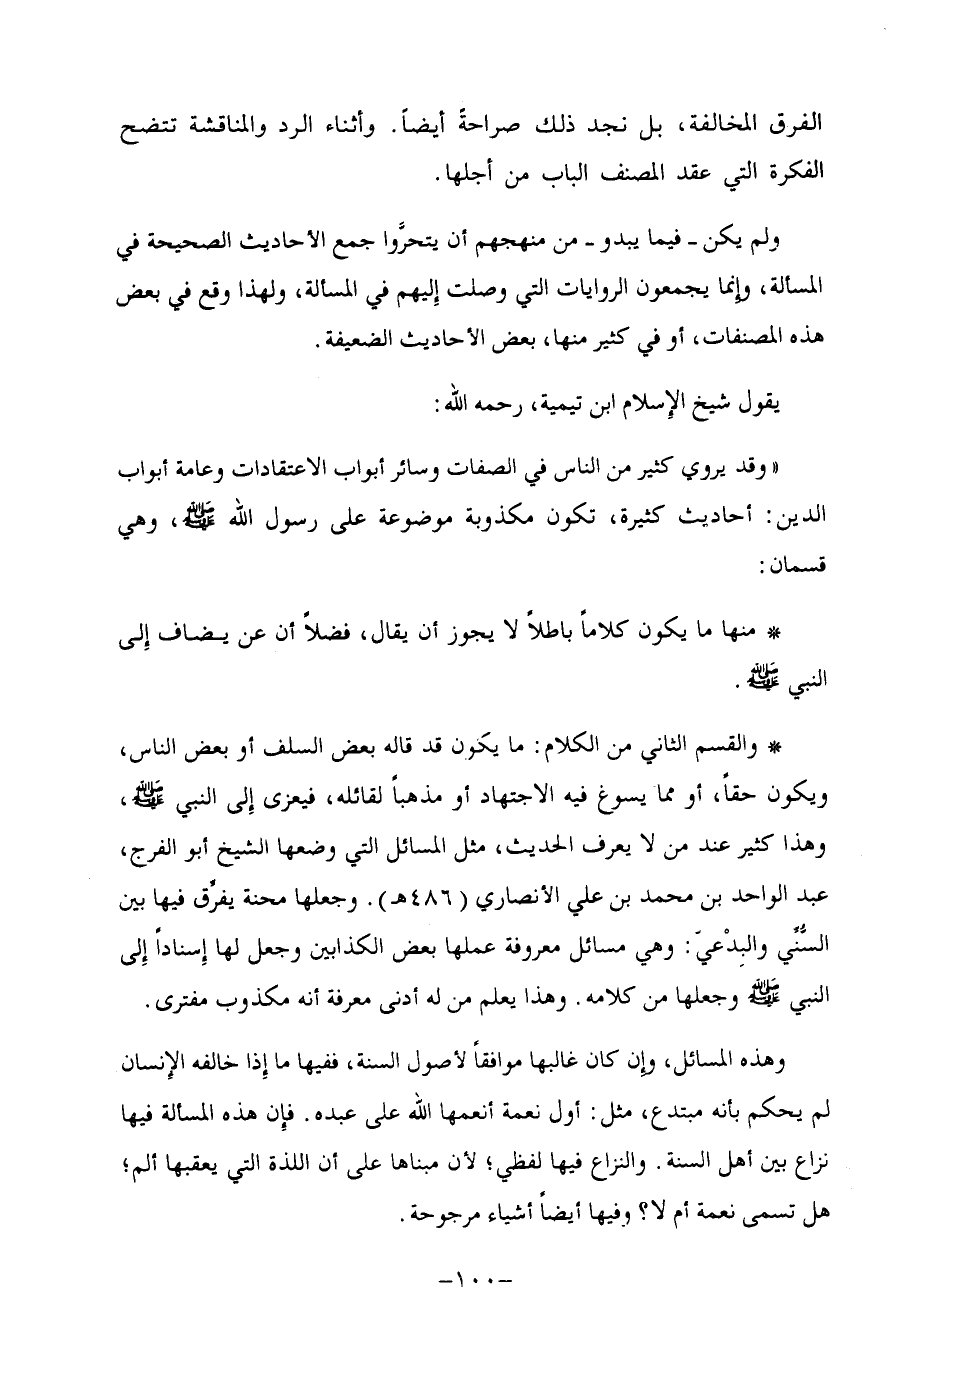 الفرق المخالفة، بل نجد ذلك صراحةً أيضاً. وأثناء الرد والمناقشة تتضح
الفكرة التي عقد المصنف الباب من أجلها.
ولم يكن ـ فيما يبدو ـ من منهجهم أن يتحرَّوا جمع الأحاديث الصحيحة في
المسألة، وإنما يجمعون الروايات التي وصلت إليهم في المسألة، ولهذا وقع في بعض
هذه المصنفات، أو في كثير منها، بعض الأحاديث الضعيفة.
يقول شيخ الإسلام ابن تيمية، رحمه الله:
« وقد يروي كثير من الناس في الصفات وسائر أبواب الاعتقادات وعامة أبواب
الدين: أحاديث كثيرة، تكون مكذوبة موضوعة على رسول الله ﷺ، وهي
قسمان:
* منها ما يكون كلاماً باطلاً لا يجوز أن يقال، فضلاً أن عن يضاف إلى
النبي ﷺ.
* والقسم الثاني من الكلام: ما يكون قد قاله بعض السلف أو بعض الناس،
ويكون حقاً، أو مما يسوغ فيه الاجتهاد أو مذهباً لقائله، فيعزى إلى النبي ﷺ،
وهذا كثير عند من لا يعرف الحديث، مثل المسائل التي وضعها الشيخ أبو الفرج،
عبد الواحد بن محمد بن علي الأنصاري (٤٨٦هـ). وجعلها محنة يفرَّق فيها بين
السُّنِّي والبِدْعيّ: وهي مسائل معروفة عملها بعض الكذابين وجعل لها إسناداً إلى
النبي ﷺ وجعلها من كلامه. وهذا يعلم من له أدنى معرفة أنه مكذوب مفترى.
وهذه المسائل، وإن كان غالبها موافقاً لأصول السنة، ففيها ما إذا خالفه الإنسان
لم يحكم بأنه مبتدع، مثل: أول نعمة أنعمها الله على عبده. فإن هذه المسألة فيها
نزاع بين أهل السنة. والنزاع فيها لفظي؛ لأن مبناها على أن اللذة التي يعقبها ألم؛
هل تسمى نعمة أم لا؟ وفيها أيضاً أشياء مرجوحة.
–١٠٠–